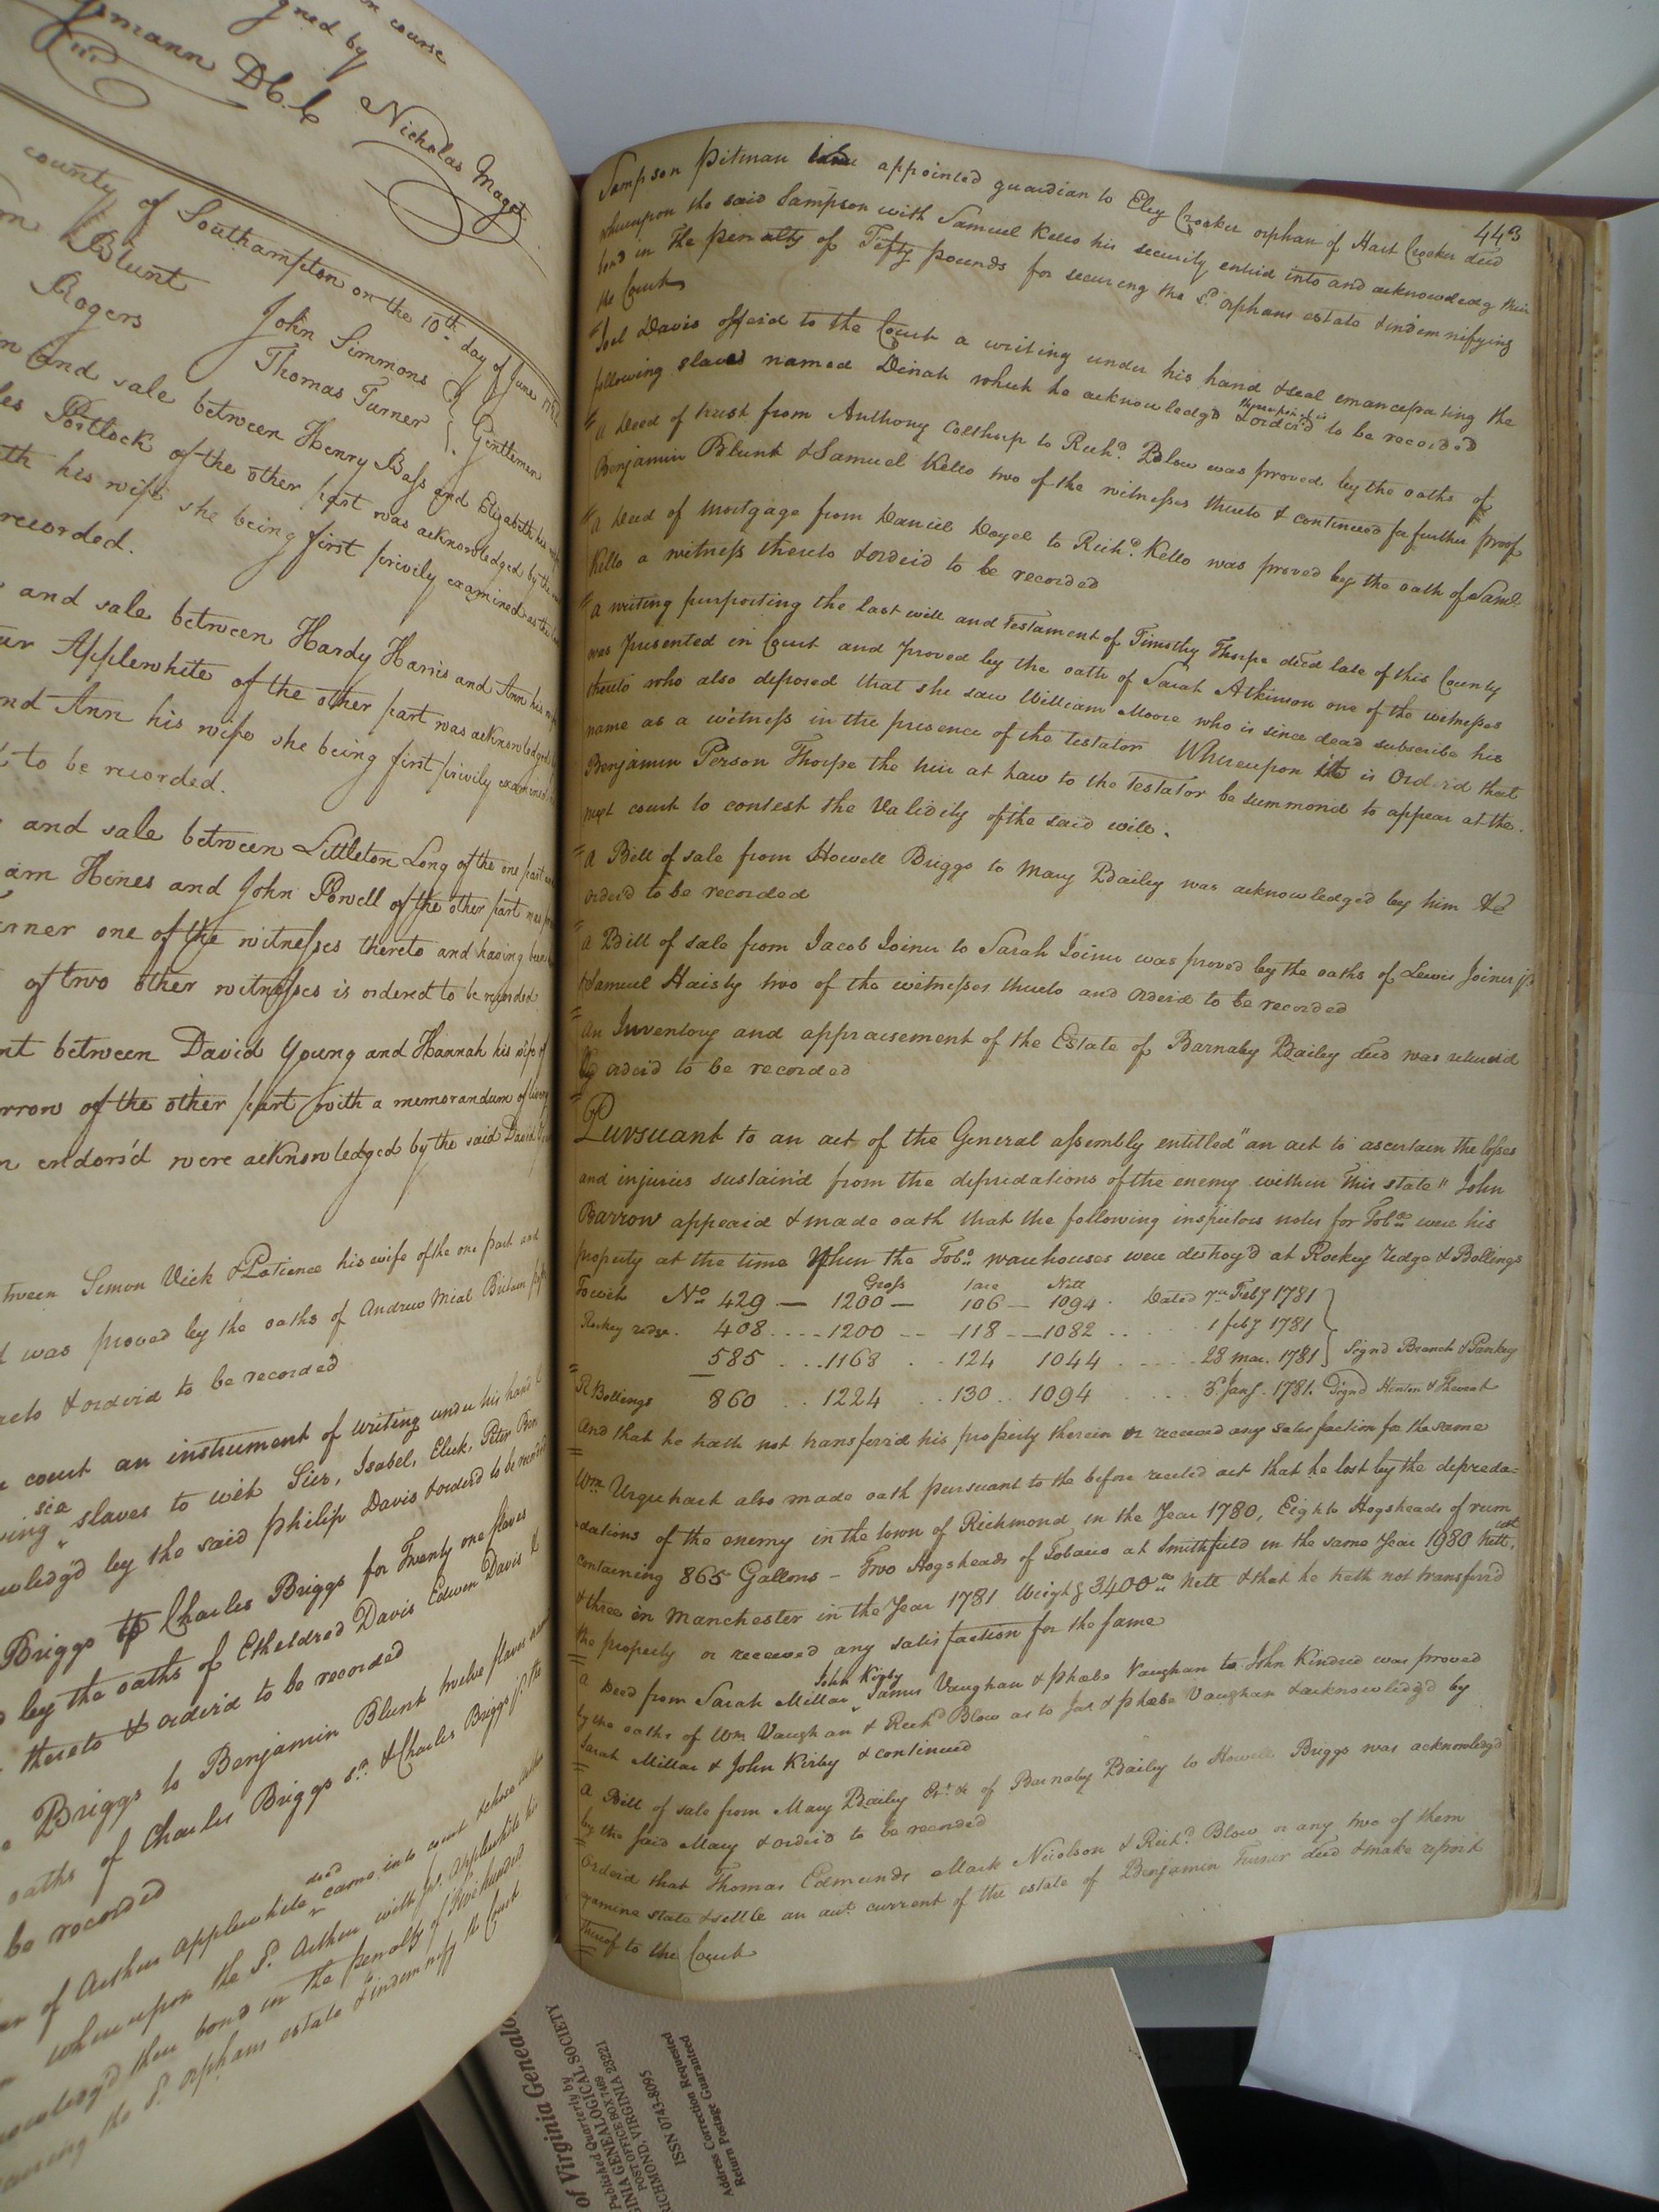 in course
signed by
Nicholas Maget
county of Southampton on the 10th day of June
Blunt John Simmons
Rogers Thomas Turner } Gentlemen
and sale between Henry Bass and Elizabeth his
Portlock of the other part was acknowledged by the
his wife she being first privily examined as the
recorded.
and sale between Hardy Harris and Ann his
Applewhite of the other part was acknowledged
and Ann his wife she being first privily examined
to be recorded.
and sale between Littleton Long of the one part
Hines and John Powell of the other part was
one of the witnesses thereto and having been
of two other witnesses is ordered to be recorded
between David Young and Hannah his wife of
of the other part with a memorandum of livery
endors'd were acknowledged by the said David
Simon Vick & Patience his wife of the one part and
was proved by the oaths of Andrew Mial
& orderd to be recorded
court an instrument of writing under his hand
six
slaves to wit Isabel, Peter
by the said Philip Davis & orderd to be recorded
Briggs to Charles Briggs for Twenty one slaves
by the oaths of Etheldred Davis Edwin Davis
thereto & orderd to be recorded
Briggs to Benjamin Blunt twelve slaves
oaths of Charles Briggs Sr. & Charles Briggs Jr. the
be recorded
of Arthur Applewhite decd came into court
whereupon the Sd. Arthur with Applewhite his
their bond in the penalty of five hundred
the Sd. orphans estate & indemnify the Court
443
Sampson Pitman appointed guardian to Eley Crocker orphan of Hart Crocker decd
whereupon the said Sampson with Samuel Kello his security enterd into and acknowledg their
bond in the penalty of Fifty pounds for securing the Sd. orphans estate & indemnifying
the Court
Joel Davis offerd to the Court a writing under his hand & seal emancipating the
following slaves named Dinah which he acknowledgd & orderd to be recorded
A Deed of trust from Anthony to Richd. Blow was proved by the oaths of
Benjamin Blunt & Samuel Kello two of the witnesses thereto & continued for further proof
A Deed of Mortgage from Daniel Doyel to Richd. Kello was proved by the oath of Saml.
Kello a witness thereto & orderd to be recorded
A writing purporting the last will and testament of Timothy Thorpe decd late of this County
was presented in Court and proved by the oath of Sarah Atkinson one of the witnesses
thereto who also deposed that she saw William Moore who is since dead subscribe his
name as a witness in the presence of the testator Whereupon it is Orderd that
Benjamin Person Thorpe the heir at law to the Testator be summond to appear at the
next court to contest the validity of the said will.
A Bill of sale from Howell Briggs to Mary Bailey was acknowledged by him &
orderd to be recorded
A Bill of sale from Jacob Joiner to Sarah Joiner was proved by the oaths of Lewis Joiner Jr.
& Samuel Haisty two of the witnesses thereto and orderd to be recorded
An Inventory and appraisement of the Estate of Barnaby Bailey decd was returnd
& orderd to be recorded
Pursuant to an act of the General assembly entitled "an act to ascertain the losses
and injuries sustain'd from the depredations of the enemy within this state" John
Barrow appeard & made oath that the following inspectors notes for Tobo. were his
property at the time when the Tobo. warehouses were destroy'd at Rockey redge & Bollings
Gross tare Nett
To wit No 429 — 1200 — 106 — 1094 . Dated 7th Feby 1781
Rockey redge. 408 .... 1200 -- 118 -- 1082 .. 1 feby 1781
585 ... 1168 .. 124 1044 .... 28 mar. 1781 } Signd Branch & Pankey
R Bollings 860 .. 1224 .. 130 .. 1094 .... 5 Jany. 1781. Signd Hinton &
and that he hath not transferrd his property therein or receivd any satisfaction for the same
Wm Urquhart also made oath pursuant to the before recited act that he lost by the depreda=
dations of the enemy in the town of Richmond in the Year 1780, Eight Hogsheads of rum
containing 865 Gallons — Two Hogsheads of Tobacco at Smithfield in the same Year 1980 Nett,
& three in Manchester in the Year 1781 Weighg 3400 Nett & that he hath not transferr'd
the property or received any satisfaction for the same
John Kirby
A Deed from Sarah Millar James Vaughan & Phœbe Vaughan to John Kindred was proved
by the oaths of Wm Vaughan & Richd Blow as to Jas & Phœbe Vaughan & acknowledg'd by
Sarah Millar & John Kirby & continued
A Bill of sale from Mary Bailey Ext. &c of Barnaby Bailey to Howell Briggs was acknowledg'd
by the said Mary & orderd to be recorded
Orderd that Thomas Edmunds Mark Nicolson & Richd Blow or any two of them
examine state & settle an acct. current of the estate of Benjamin Turner decd & make report
thereof to the Court
of Virginia Genealo
Published Quarterly by
INIA GENEALOGICAL SOCIETY
POST OFFICE BOX 7469
RICHMOND, VIRGINIA 23221
ISSN 0743-8095
Address Correction Requested
Return Postage Guaranteed